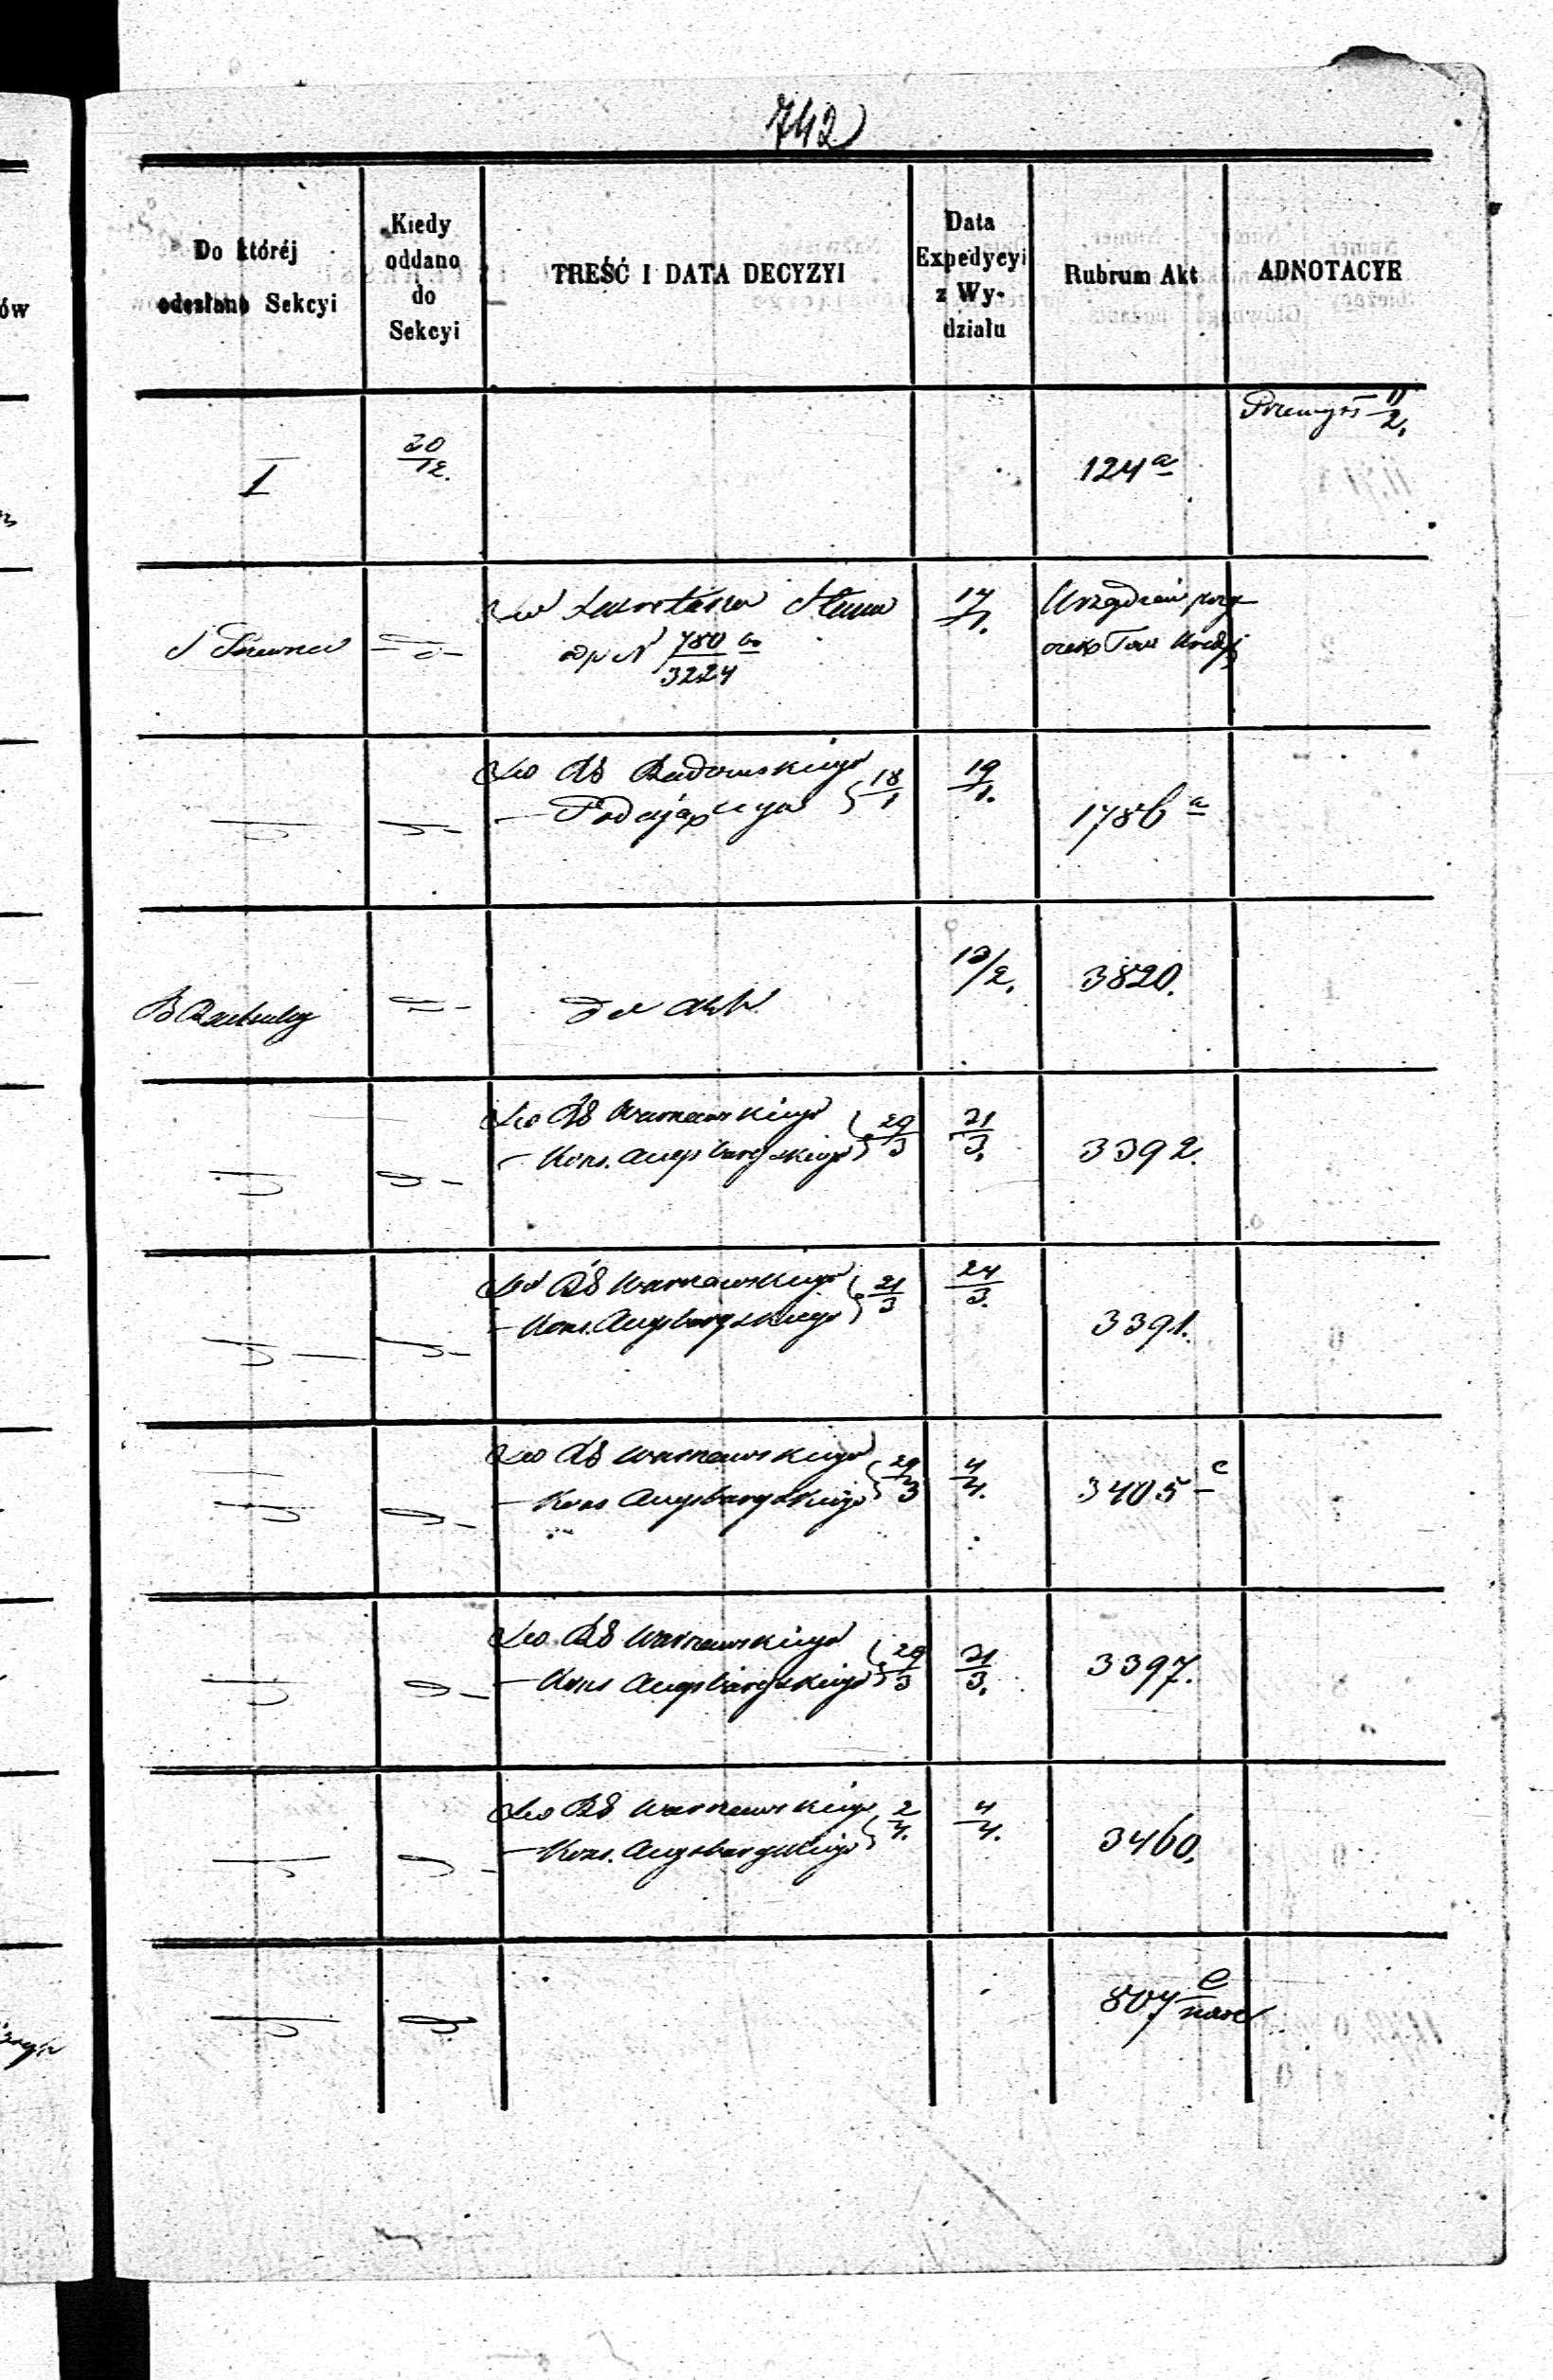 742
Do któréj
odesłano Sekcyi
Kiedy
oddano
do
Sekcyi
TREŚĆ I DATA DECYZYI
Data
Expedycyi
z Wy-
działu
Rubrum Akt
ADNOTACYE
I
20/12.
124 a
11/2.
Do Sekretarza Stanu
780/3224
17/1.
Do RG Radomskiego
18/1
19/1.
1786 a
do akt
13/2.
3820.
Do RG Warszawskiego
— Kons. Augsburgskiego
29/3
31/3.
3392.
Do RG Warszawskiego
— Kons. Augsburgskiego
21/3
24/3.
3391.
Do RG Warszawskiego
— Kons Augsburgskiego
29/3
4/4.
3405 c
Do RG Warszawskiego
— Kons Augsburgskiego
29/3
31/3.
3397.
Do RG Warszawskiego
— Kons. Augsburgskiego
2/4.
4/4.
3460.
807
ów